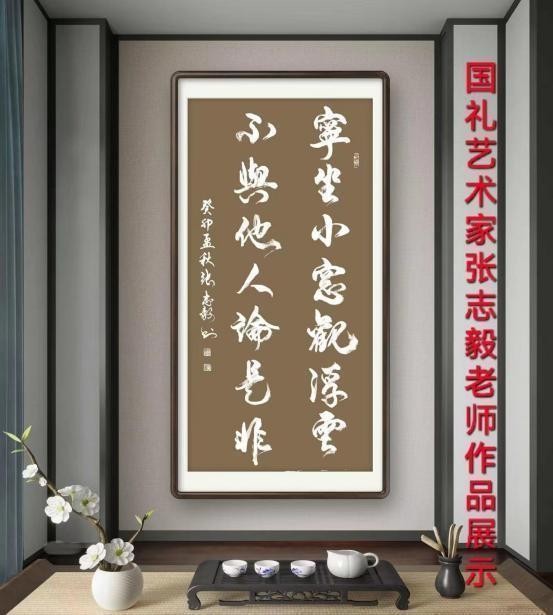 国礼艺术家张志毅老师作品展示
寧坐小窓觀浮雲
不與他人論是非
癸卯孟秋张志毅